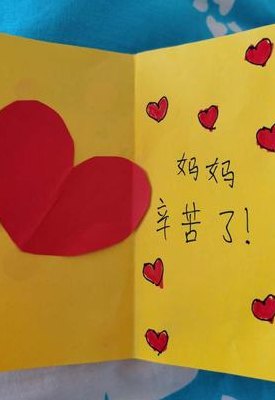 妈妈
辛苦了!